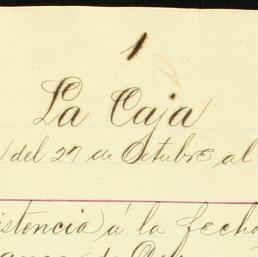 1
La Caja
del 27 de Octubre al
istencia à la fecha